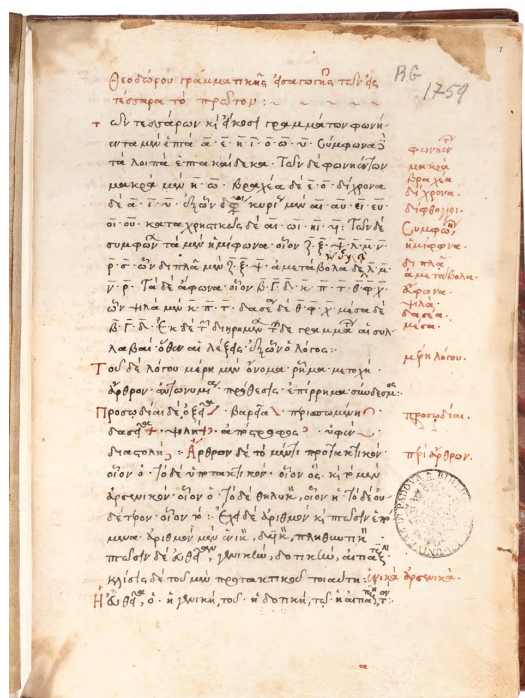 Θεοδώρου γραμματικῆς εἰσαγωγῆς τῶν εἰς
τέσσαρα τὸ πρῶτον:
RG
1759
Τῶν τεσσάρων κὶ εἴκοσι γραμμάτων φωνή
εντα μὲν ἑπτὰ ᾱ. ε̄. η̄. ῑ. ο̄. ω̄. ῡ. Σύμφωνα δὲ
τὰ λοιπὰ ἑπτακαίδεκα. Τῶν δὲ φωνηέντων
μακρὰ μὲν η̄. ω̄. βραχέα δὲ ε̄. ο̄. δίχρονα
δὲ ᾱ. ῑ. ῡ. ἐξ ὧν δίφθογγοι κυρίως μὲν αι αυ. ει. ευ.
οι. ου. καταχρηστικῶς δὲ αι. ωι. ηι. υι: Τῶν δὲ
συμφώνων τὰ μὲν ἡμίφωνα. οἷον ζ̄. ξ̄. ψ̄. λ̄. μ̄. ν̄.
ρ̄. σ̄. ὧν διπλᾶ μὲν ζ̄. ξ̄. ψ̄. ἀμετάβολα δὲ λ̄. μ̄.
ν̄. ρ̄. Τὰ δὲ ἄφωνα. οἷον β̄. γ̄. δ̄. κ̄. π̄. τ̄. θ̄. φ̄. χ̄.
ὧν ψιλὰ μὲν κ̄. π̄. τ̄. δασέα δὲ θ̄. φ̄. χ̄. μέσα δὲ
β̄. γ̄. δ̄. Ἐκ δὲ τῶν διῃρημένων τῶνδε γραμμάτων αἱ συλ
λαβαί. ὅθεν αἱ λέξεις. ἐξ ὧν ὁ λόγος:
Τοῦ δὲ λόγου μέρη μὲν ὄνομα. ῥῆμα. μετοχή.
ἄρθρον. ἀντωνυμία. πρόθεσις. ἐπίρρημα. σύνδεσμος:
Προσῳδίαι δὲ ὀξεῖα. βαρεῖα. περισπωμένη.
δασεῖα. ψιλή. ἀπόστροφος. ὑφέν.
διαστολή. Ἄρθρον δὲ τὸ μέν τι προτακτικόν.
οἷον ὁ. τὸ δὲ ὑποτακτικόν. οἷον ὅς. κὶ τὸ μὲν
ἀρσενικόν. οἷον ὁ. τὸ δὲ θηλυκόν, οἷον ἡ. τὸ δὲ οὐ
δέτερον. οἷον τό: Ἔχει δὲ ἀριθμὸν κὶ πτῶσιν ἑπό
μενα. ἀριθμὸν μὲν ἑνικόν, δυϊκόν, πληθυντικόν.
πτῶσιν δὲ εὐθεῖαν, γενικήν, δοτικήν, αἰτιατικήν.
κλίσις δὲ τοῦ μὲν προτακτικοῦ τοιαύτη: ἑνικὰ ἀρσενικά.
Ἡ εὐθεῖα, ὁ. ἡ γενική, τοῦ. ἡ δοτική, τῷ. ἡ αἰτιατική, τόν:
φωνήεντα
μακρά
βραχέα
δίχρονα.
δίφθογγοι.
Σύμφωνα
ἡμίφωνα.
διπλᾶ
ἀμετάβολα.
ἄφωνα.
ψιλά.
δασέα.
μέσα.
μέρη λόγου.
προσῳδίαι.
περὶ ἄρθρων.